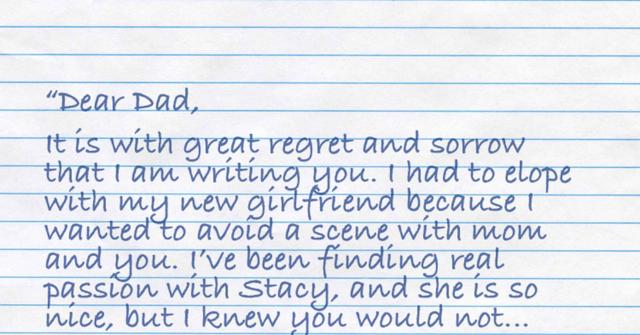 “Dear Dad,
It is with great regret and sorrow
that I am writing you. I had to elope
with my new girlfriend because I
wanted to avoid a scene with mom
and you. I’ve been finding real
passion with Stacy, and she is so
nice, but I knew you would not...